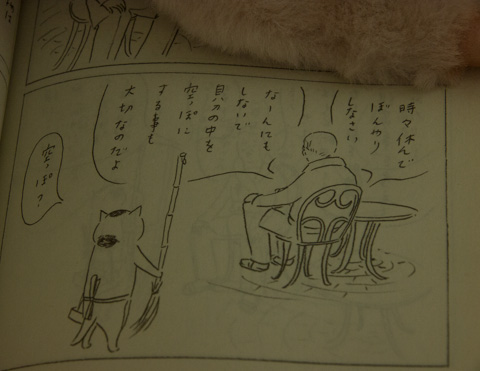 時々休んで
ぼんやり
しなさい
なーんにも
しないで
具力の中を
空っぽに
する事も
大切なのだよ
空っぽ？